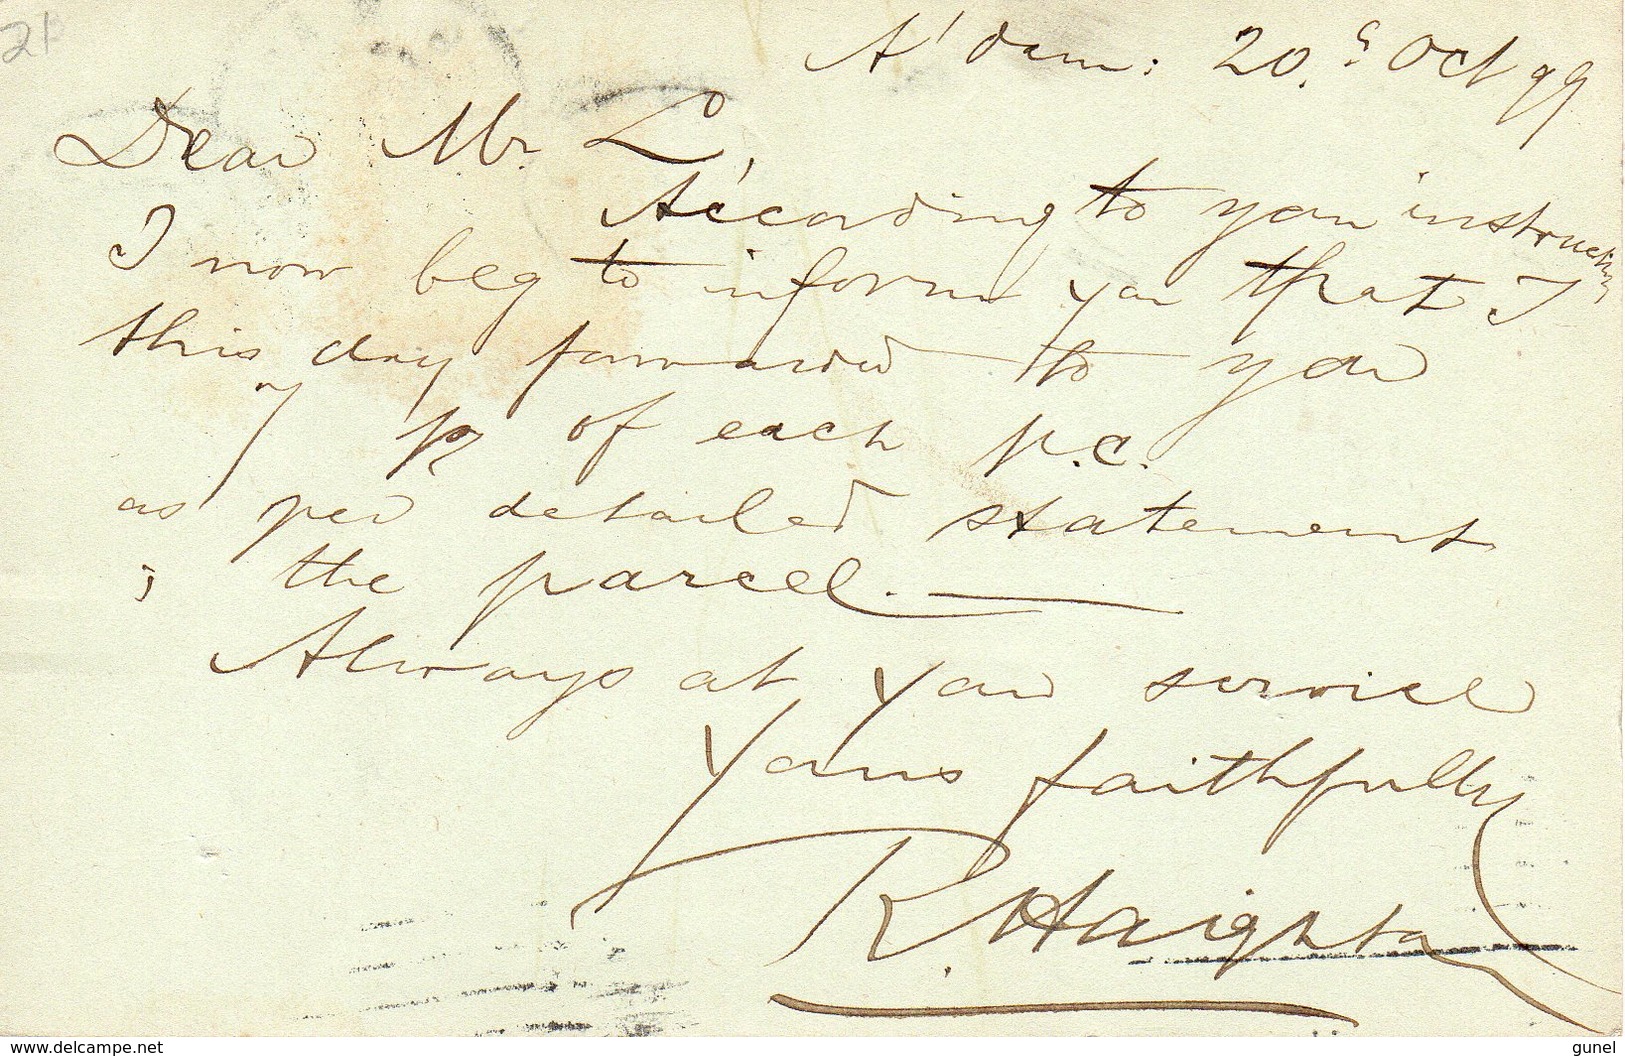 21
A'dam: 20.s Oct 99
Dear Mr. L,
According to your instructions
I now beg to inform you that I
this day forwarded to you
7 of each p.c.
as per detailed statement
; the parcel.
Always at your service
Yours faithfully
R. Haighta
www.delcampe.net
gunel